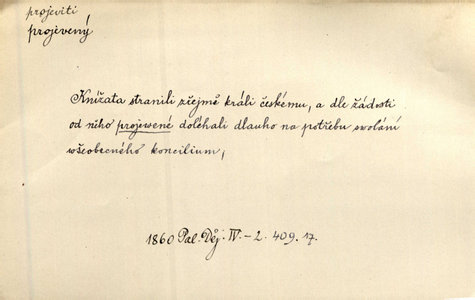 projeviti
projevený
Knížata stranili zřejmě králi českému, a dle žádosti
od něho projewené doléhali dlauho na potřebu swolání
wšeobecného koncilium,
1860 Pal. Děj. IV. - 2. 409. 17.